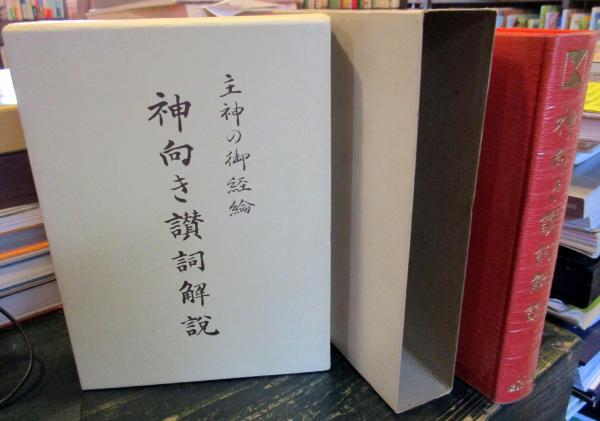 主神の御経綸
神向き讃詞解説
神向き讃詞解説